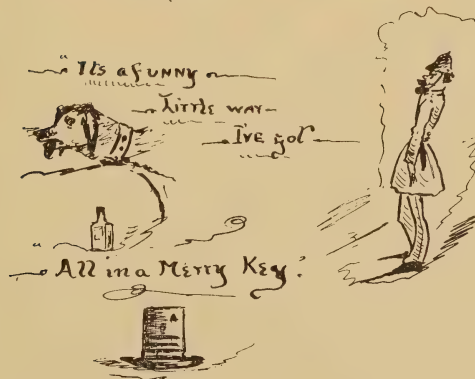 "Its a funny
Little way
I've got
"All in a Merry Key."